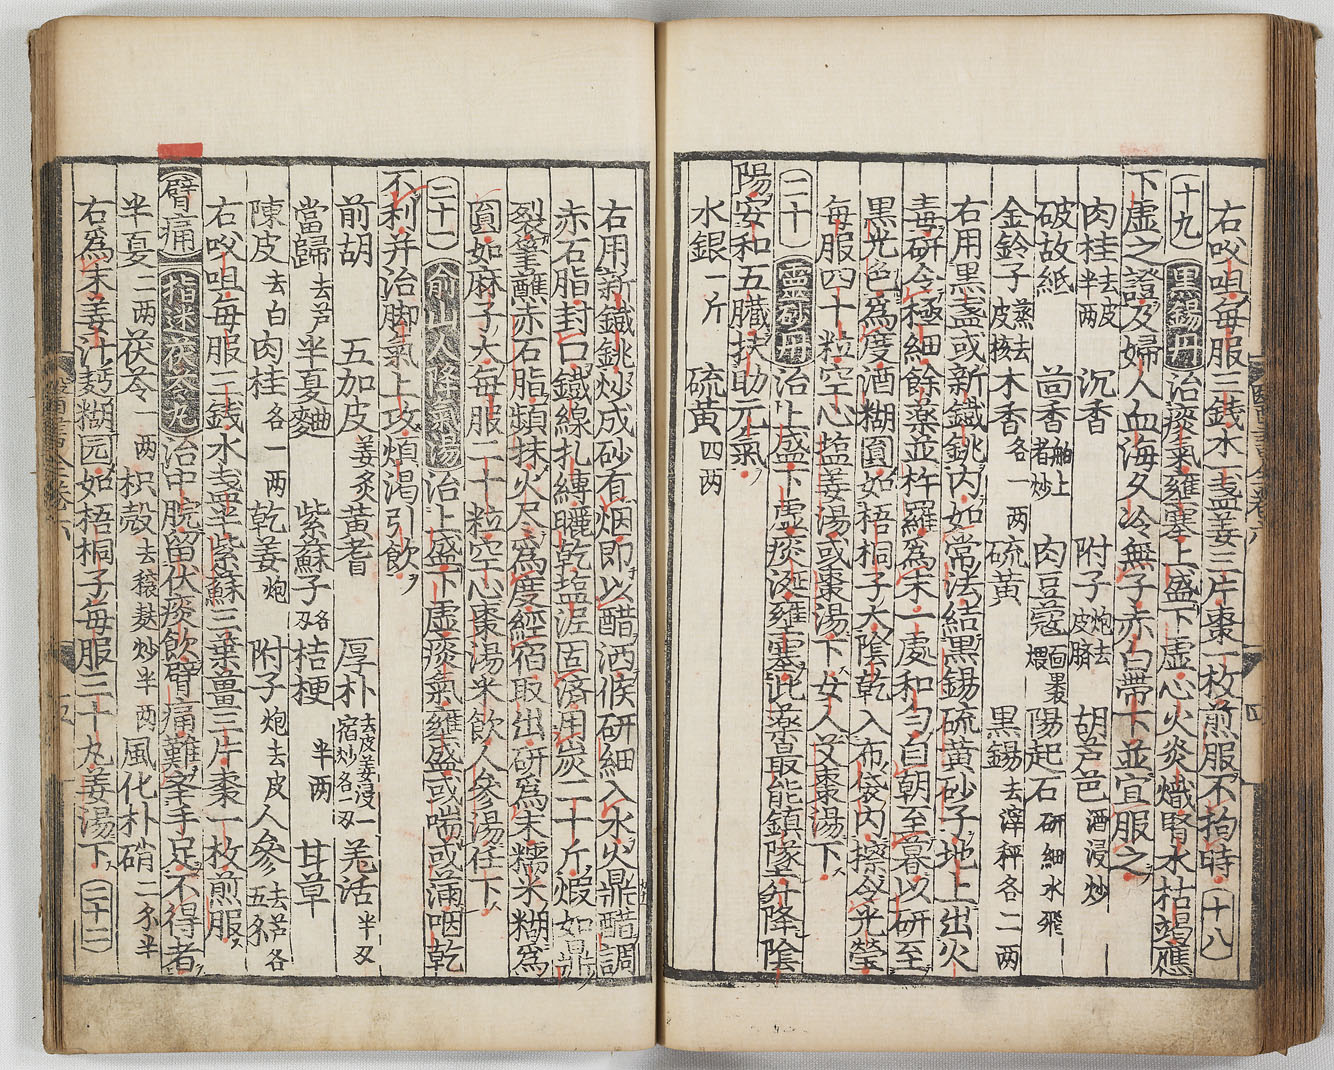 右㕮咀每服三錢水一盞姜三片棗一枚煎服不拘時(十八)
(十九)黑錫丹治痰氣壅塞上盛下虛心火炎熾腎水枯竭應
下虛之證及婦人血海久冷無子赤白帶下並宜服之
肉桂去皮半两 沉香 附子炮去皮臍 胡芦芭酒浸炒
破故紙 茴香舶上者炒 肉豆蔻面裹煨 陽起石研細水飛
金鈴子蒸去皮核 木香各一两 硫黃 黑錫去滓秤各二两
右用黑盞或新鐵銚內如常法結黑錫硫黃砂子地上出火
毒研令極細餘藥並杵羅爲末一處和勻自朝至暮以研至
黑光色爲度酒糊圓如梧桐子大陰乾入布袋內擦令光瑩
每服四十粒空心塩姜湯或棗湯下女人艾棗湯下
(二十)靈砂丹治上盛下虛痰涎壅塞此藥最能鎮墜升降陰
陽安和五臟扶助元氣
水銀一斤 硫黃四两
右用新鐵銚炒成砂有烟即以醋洒候研細入水火鼎醋調
赤石脂封口鐵線扎縛曬乾塩泥固済用炭二十斤煅如鼎
裂筆蘸赤石脂頻抹火尽爲度經宿取出研爲末糯米糊爲
圓如麻子大每服二十粒空心棗湯米飲人參湯任下
(二十一)俞山人降氣湯治上盛下虛痰氣壅盛或喘或滿咽乾
不利并治脚氣上攻煩渴引飲
前胡 五加皮姜炙 黃耆 厚朴去皮姜浸一宿炒各一刄 羌活半刄
當歸去芦 半夏麯 紫蘇子各刄 桔梗半两 甘草
陳皮去白 肉桂各一两 乾姜炮 附子炮去皮 人參去芦各五分
右㕮咀每服三錢水盞半紫蘇三葉薑三片棗一枚煎服
(臂痛)指迷茯苓丸治中脘留伏痰飲臂痛難牽手足不得者
半夏二两 茯苓一两 枳殼去穣麸炒半两 風化朴硝二分半
右爲末姜汁麪糊园如梧桐子每服三十丸姜湯下(二十二)